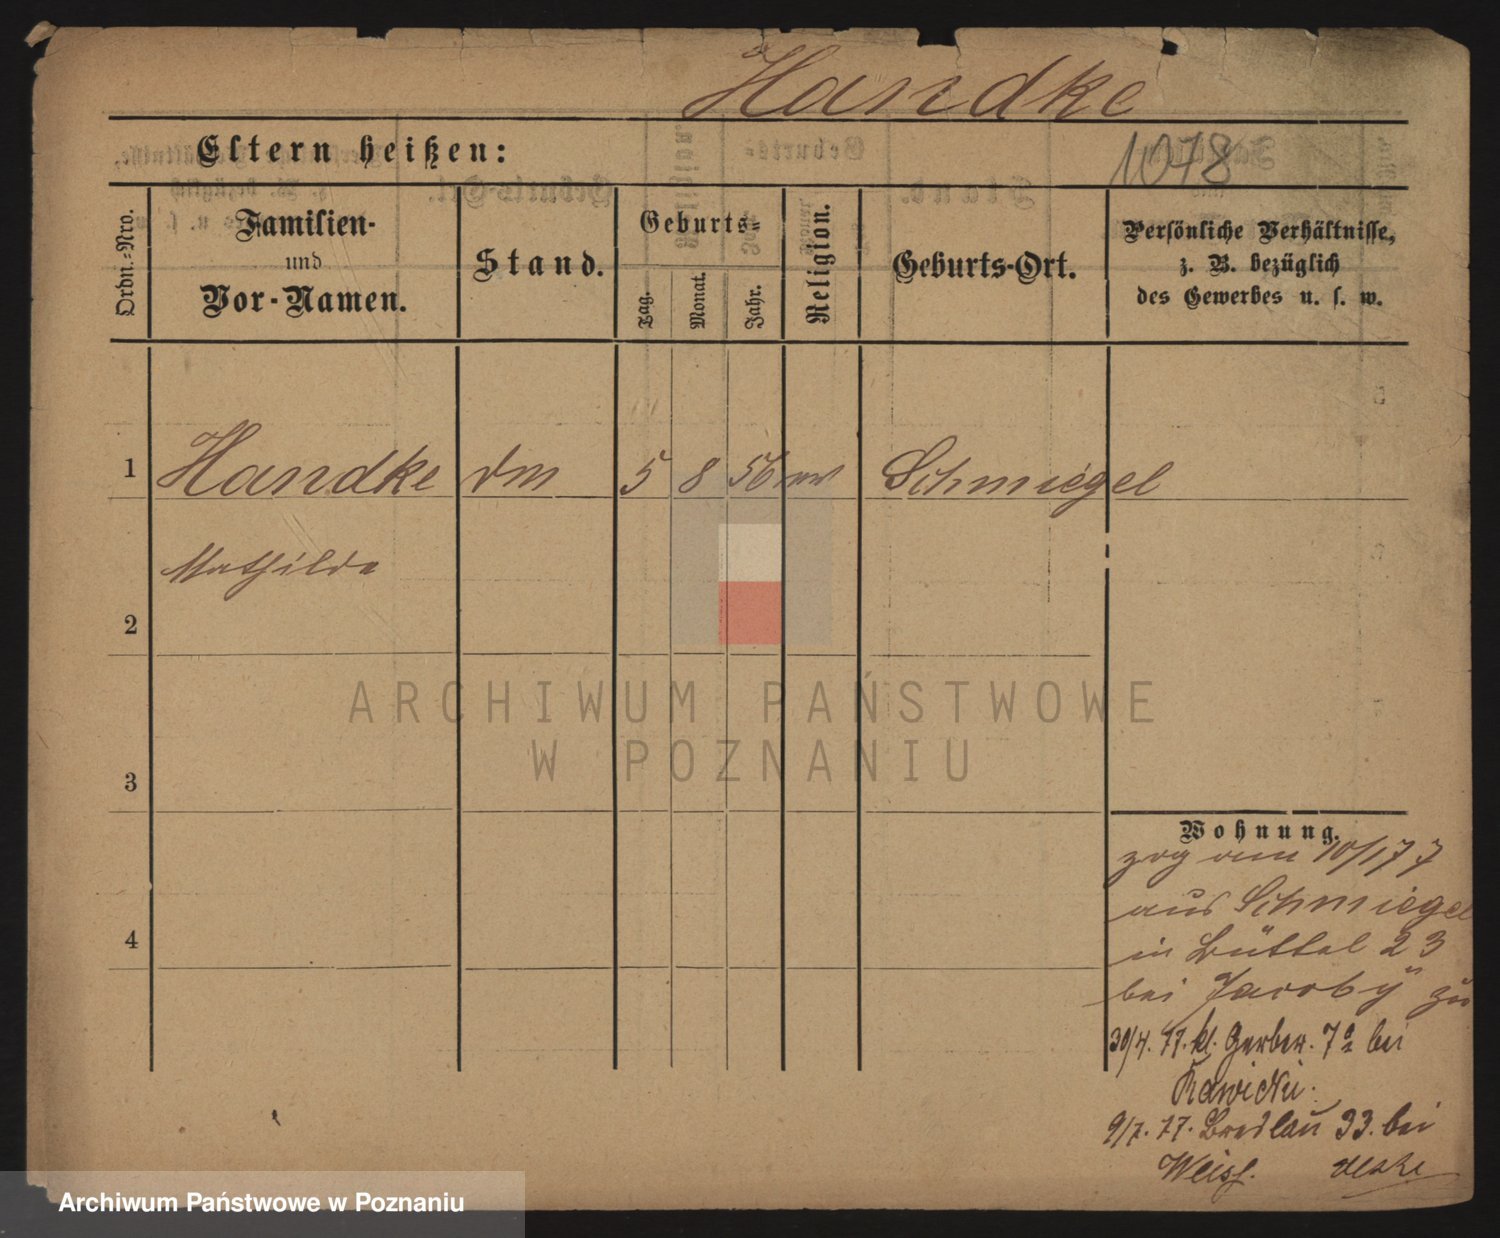 Handke
Eltern heißen:
1078
Ordn.-Nro.
Familien-
und
Vor-Namen.
Stand.
Geburts-
Tag.
Monat.
Jahr.
Religion.
Geburts-Ort.
Persönliche Verhältnisse,
z. B. bezüglich
des Gewerbes u. s. w.
1 Handke 5 8 56 Schmiegel
Mathilde
2
ARCHIWUM PAŃSTWOWE
W POZNANIU
3
Wohnung.
zog am 10/1 77
aus Schmiegel
in Büttel 23
bei Jacoby
4
30/4. 77. kl. Gerber. 7a bei
Rawicki.
9/7. 77. Breslau 33. bei
Weiss.
Archiwum Państwowe w Poznaniu